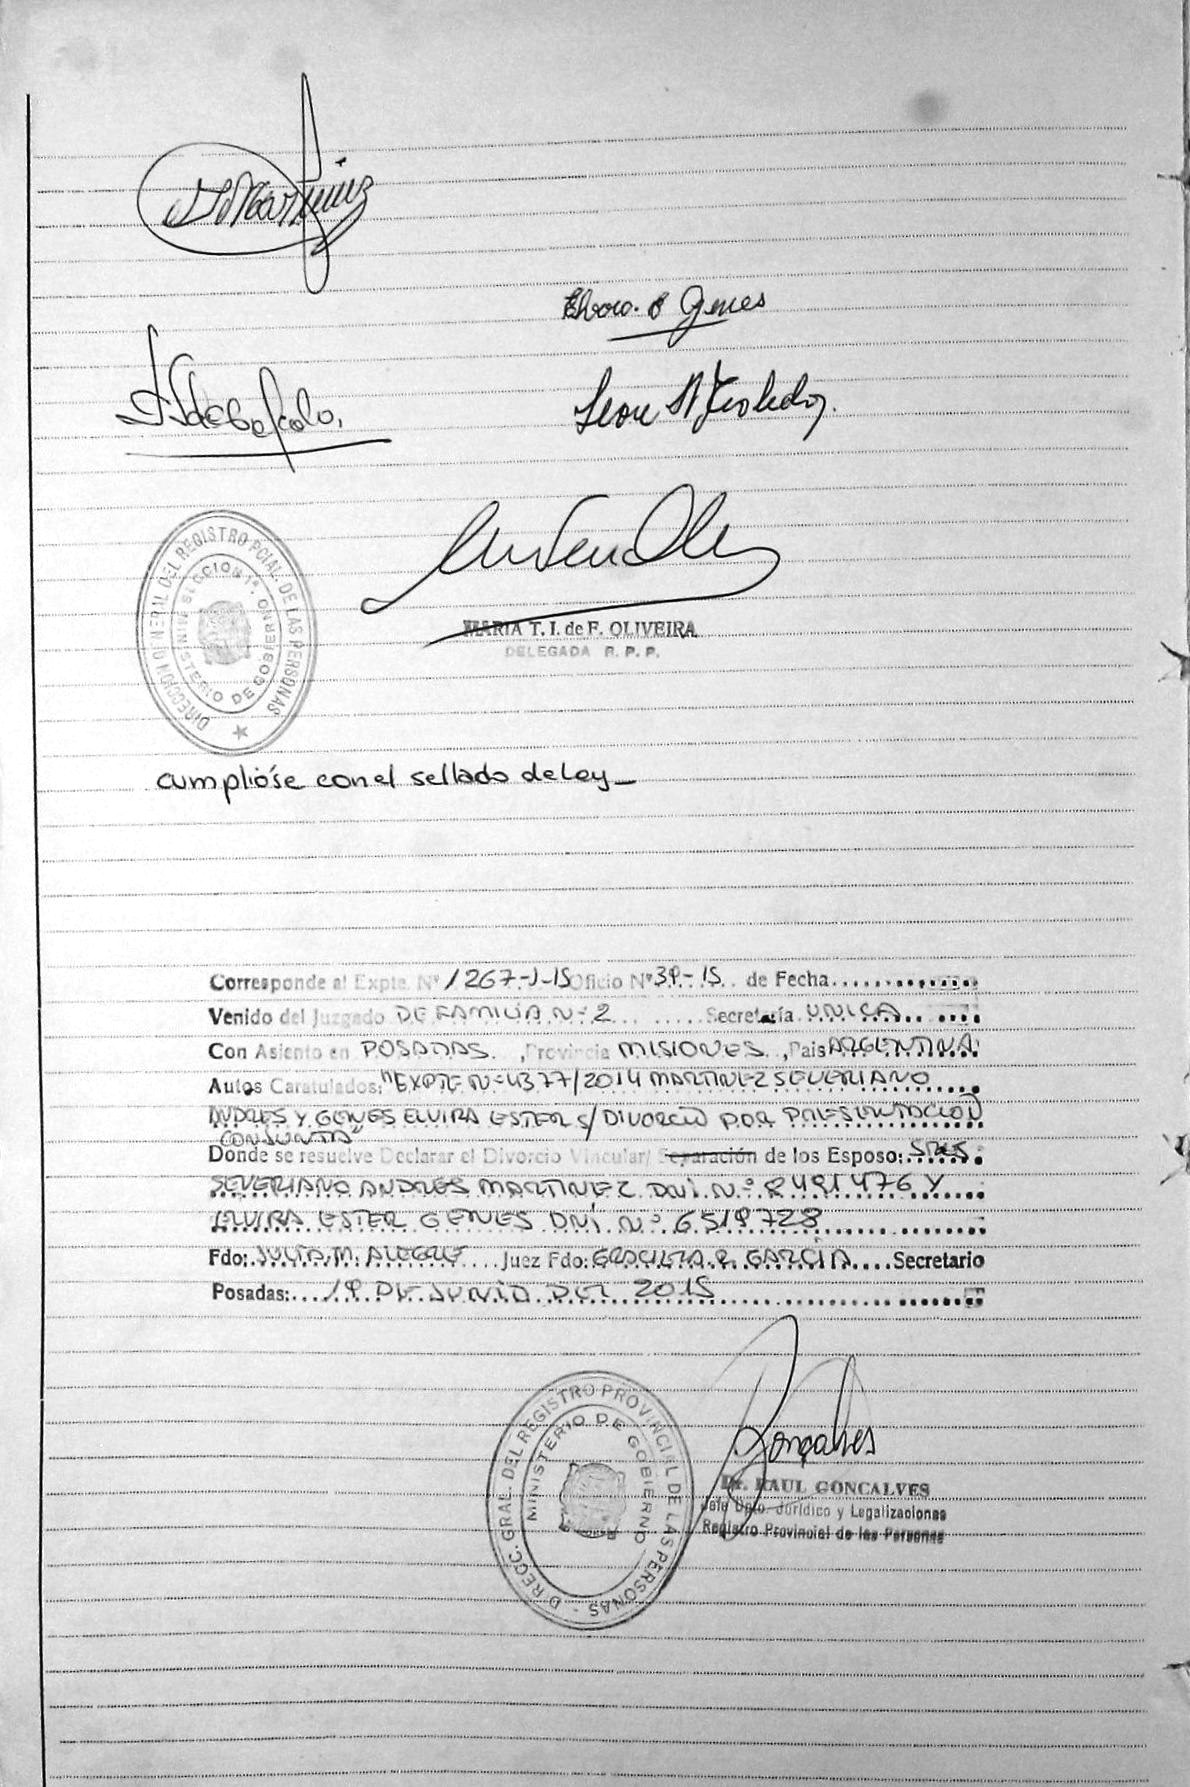 Elvira. E Genes
MARIA T. I. de F. OLIVEIRA
DELEGADA R. P. P.
DIRECCION GENERAL DEL REGISTRO PCIAL. DE LAS PERSONAS
SECCION 1ª. MINISTERIO DE GOBIERNO
cumplióse con el sellado de Ley_
Corresponde al Expte. Nº 1267-J-15 Oficio Nº 39-15 de Fecha
Venido del Juzgado DE FAMILIA N-2 Secretaría UNICA
Con Asiento en POSADAS. ,Provincia MISIONES ,Pais ARGENTINA
Autos Caratulados: "EXPTE N-4377/2014 MARTINEZ SEVERIANO
ANDRES Y GENES ELVIRA ESTER S/ DIVORCIO POR PRESENTACION
CONJUNTA"
Donde se resuelve Declarar el Divorcio Vincular/ Separación de los Esposo: SRES
SEVERIANO ANDRES MARTINEZ DNI. N.º 8491476 Y
ELVIRA ESTER GENES DNI. N.º 6.519.728
Fdo: JULIA. M. ALEGRE Juez Fdo: GRACIELA. R. GARCÍA Secretario
Posadas: 19 DE JUNIO DEL 2015
DIRECC. GRAL. DEL REGISTRO PROVINCIAL DE LAS PERSONAS -
MINISTERIO DE GOBIERNO
Gonçalves
Dr. RAUL GONCALVES
Jefe Dpto. Jurídico y Legalizaciones
Registro Provincial de las Personas